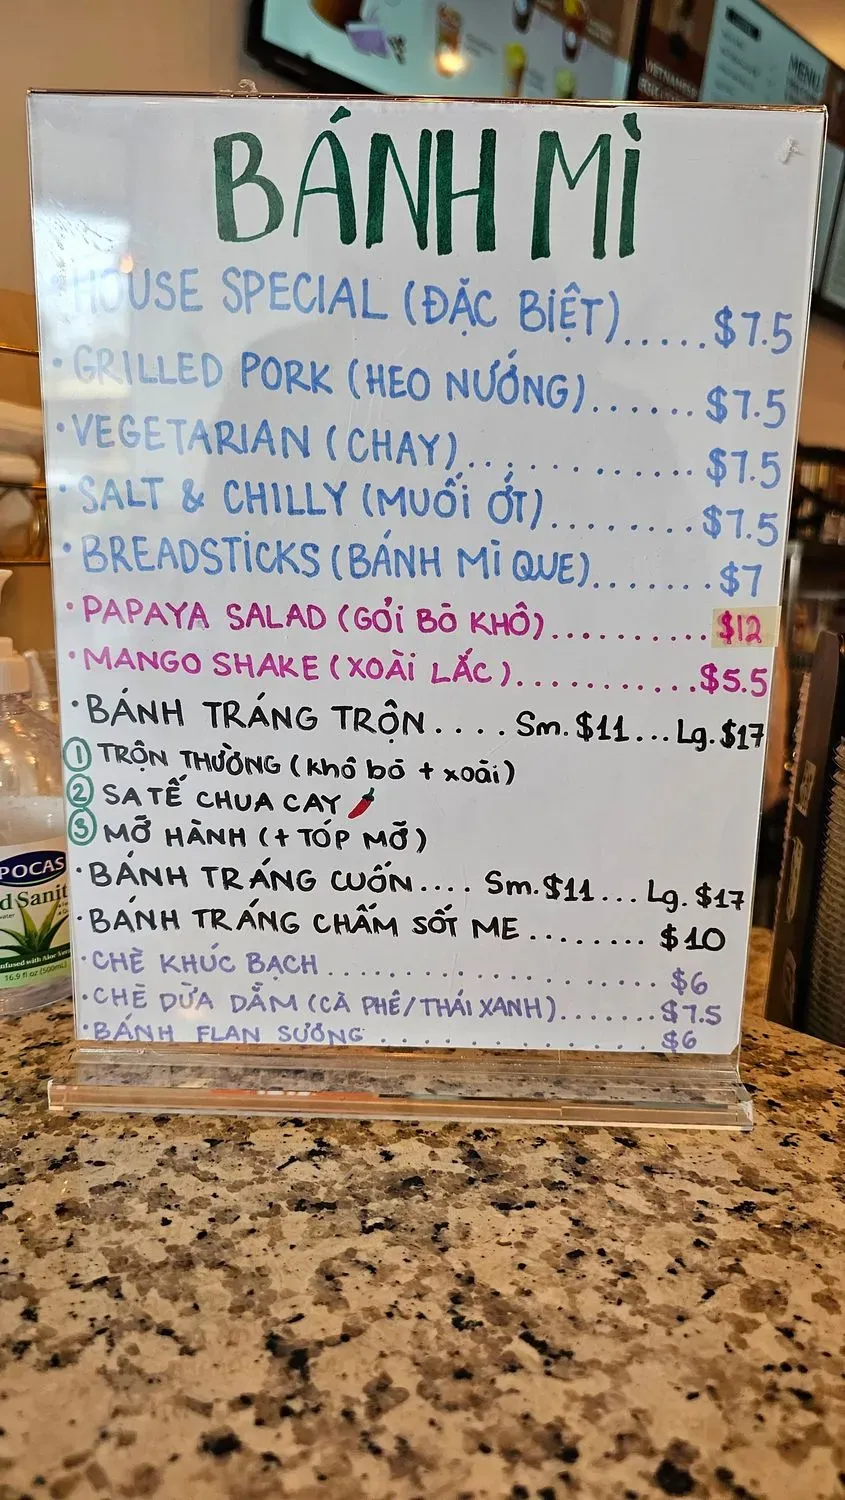 BÁNH MÌ
• HOUSE SPECIAL (ĐẶC BIỆT).....$7.5
• GRILLED PORK (HEO NƯỚNG)......$7.5
• VEGETARIAN (CHAY)...............$7.5
• SALT & CHILLY (MUỐI ỚT).........$7.5
• BREADSTICKS (BÁNH MÌ QUE).......$7
• PAPAYA SALAD (GỎI BÒ KHÔ)..........$12
• MANGO SHAKE (XOÀI LẮC)...........$5.5
• BÁNH TRÁNG TRỘN.... Sm. $11... Lg. $17
① TRỘN THƯỜNG (khô bò + xoài)
② SA TẾ CHUA CAY 🌶
③ MỠ HÀNH (+ TÓP MỠ)
• BÁNH TRÁNG CUỐN.... Sm. $11... Lg. $17
• BÁNH TRÁNG CHẤM SỐT ME........ $10
• CHÈ KHÚC BẠCH................... $6
• CHÈ DỪA DẦM (CÀ PHÊ/THÁI XANH).......$7.5
• BÁNH FLAN SƯƠNG............ $6
MENU
VIETNAMESE
POCAS
16.9 fl oz (500mL)